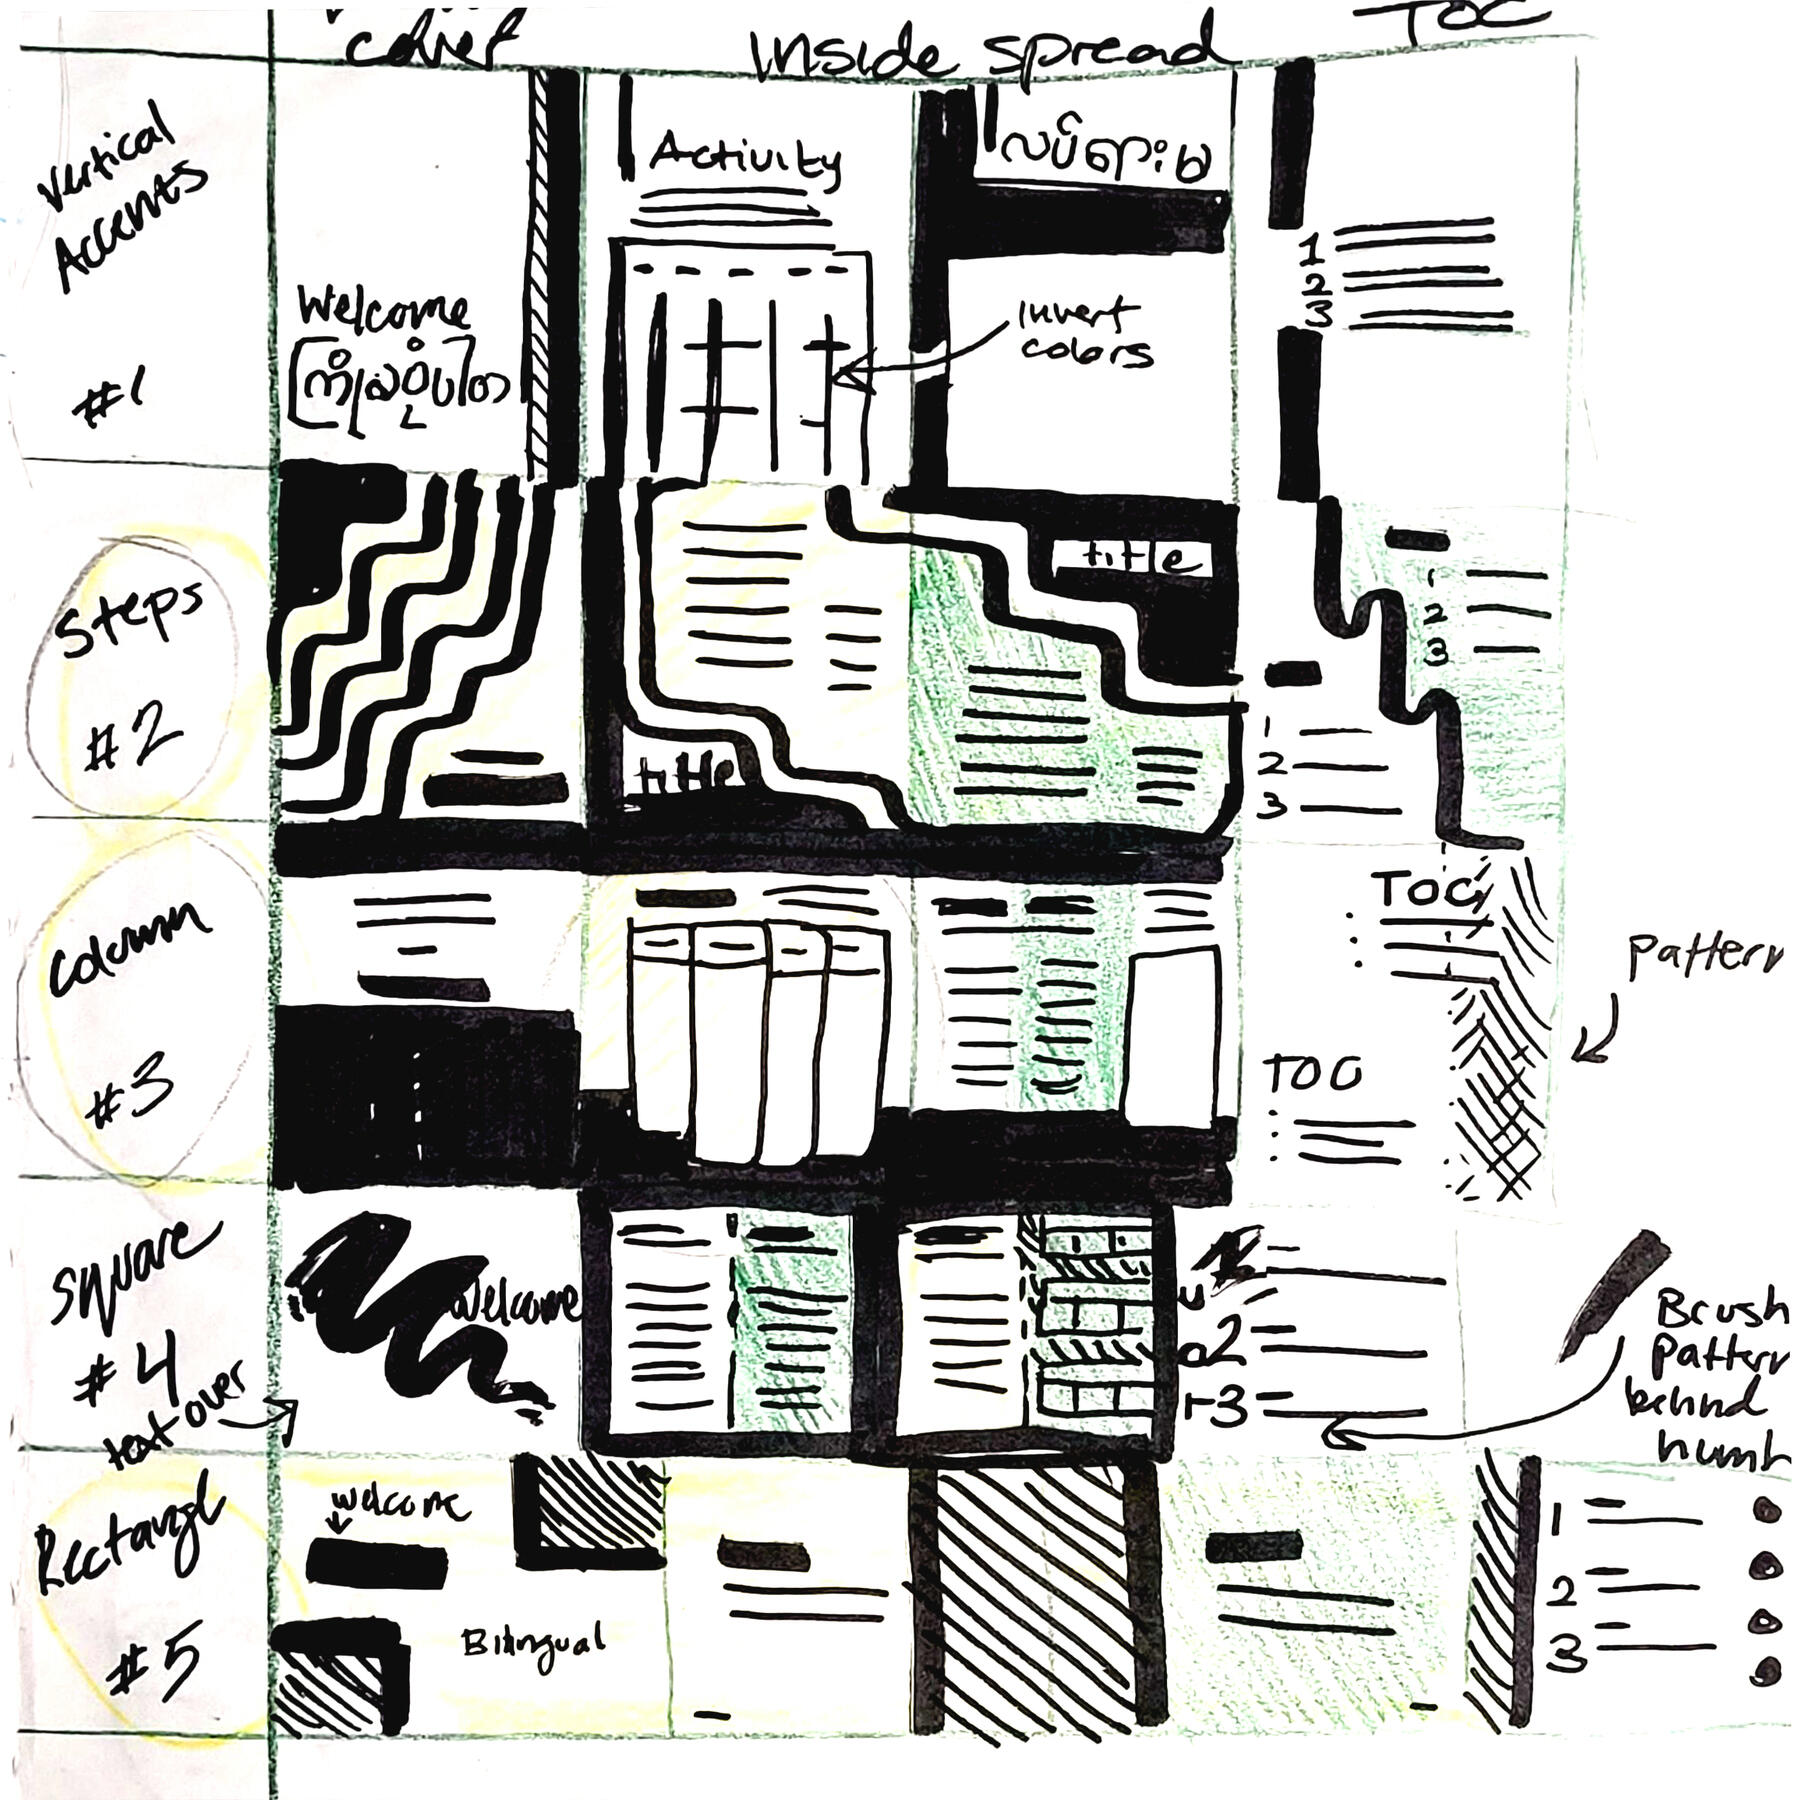 cover
Inside spread
TOC
Vertical
Accents
#1
Welcome
ကြိုဆိုပါတ
Activity
လှုပ်ရှားမ
invert
colors
1
2
3
Steps
#2
title
title
1
2
3
1
2
3
Column
#3
TOC
TOC
Pattern
Square
#4
text over
Welcome
2
3
Brush
Pattern
behind
numb
Rectangl
#5
Welcome
Bilingual
1
2
3